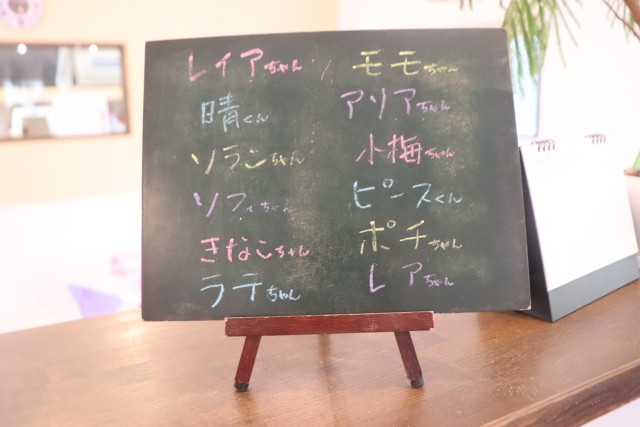 レイアちゃん
晴くん
ソランちゃん
ソフィちゃん
きなこちゃん
ラテちゃん
モモちゃん
アリアちゃん
小梅ちゃん
ピースくん
ポチちゃん
レアちゃん